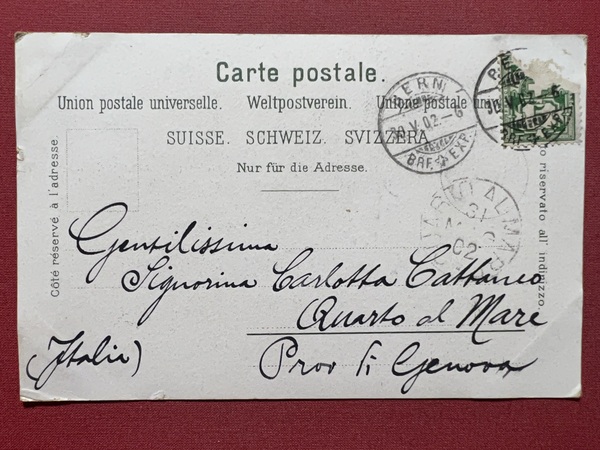 Carte postale.
Union postale universelle. Weltpostverein. Unione postale u
SUISSE. SCHWEIZ. SVIZZERA
Nur für die Adresse.
Côté réservé à l'adresse.
o riservato all' indirizzo.
BERN
30.V.02.-6
BRF. EXP.
30.V.
6
QUARTO AL MARE
31
02
Gentilissima
Signorina Carlotta Cattaneo
Quarto al Mare
(Italia) Prov di Genova